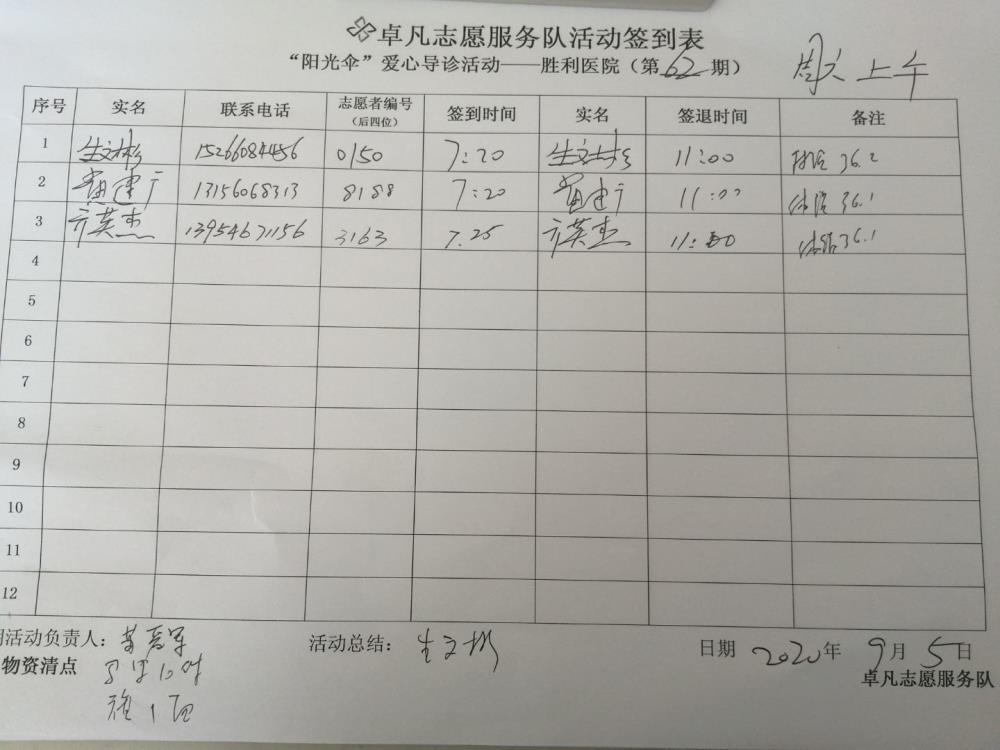 卓凡志愿服务队活动签到表
“阳光伞”爱心导诊活动——胜利医院（第62期）
周六上午
序号 实名 联系电话 志愿者编号（后四位） 签到时间 实名 签退时间 备注
1 生文彬 15266084456 0150 7:20 生文彬 11:00 体温 36.2
2 建广 13156068313 8188 7:20 建广 11:00 体温 36.1
3 英杰 13954671156 3163 7.25 英杰 11:00 体温 36.1
4
5
6
7
8
9
10
11
12
期活动负责人： 活动总结：生文彬 日期 2020年9月5日
物资清点
卓凡志愿服务队